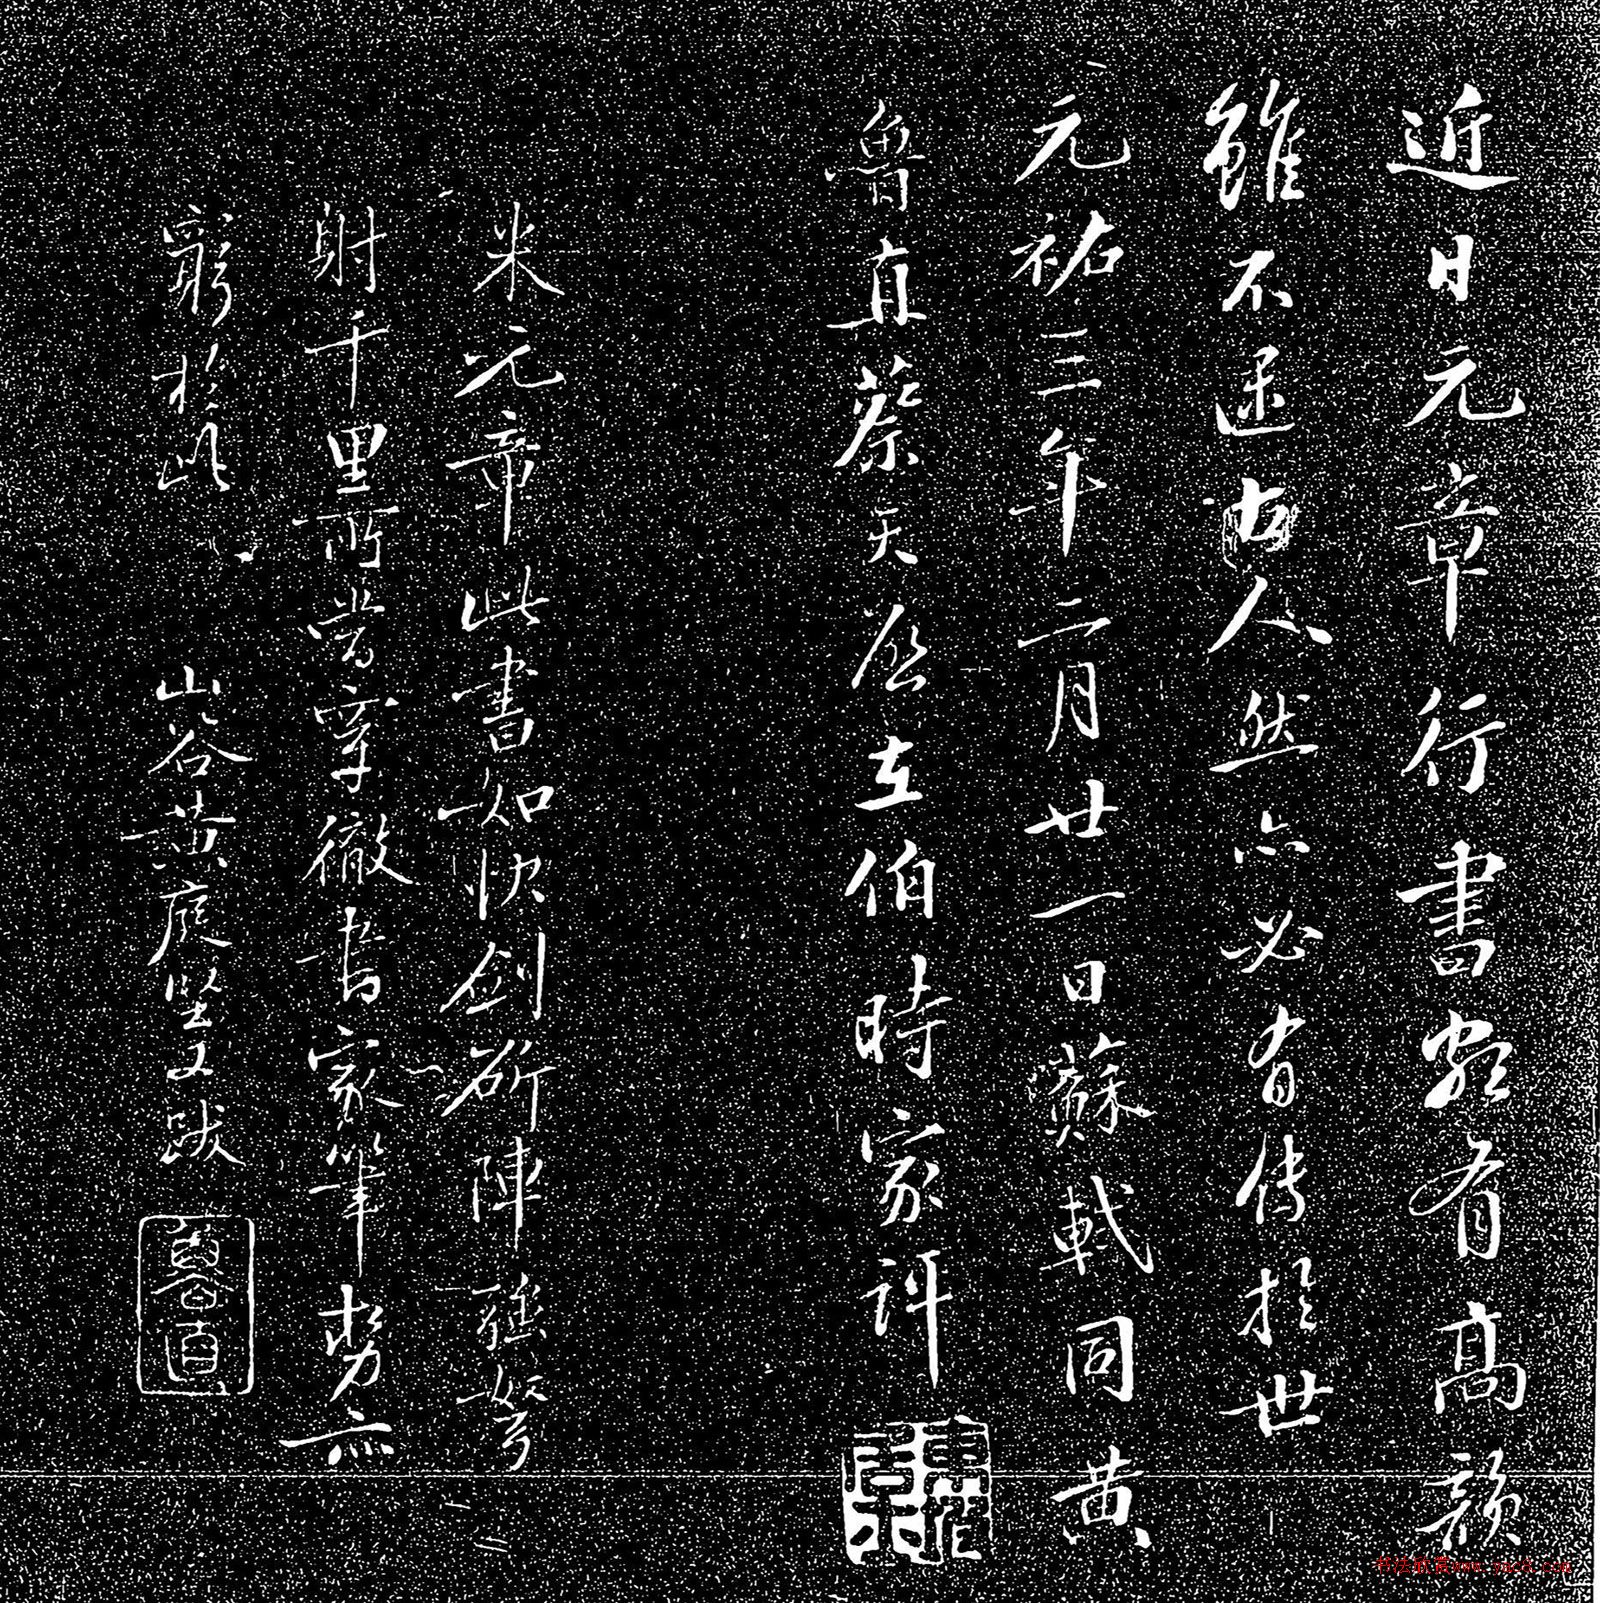 近日元章行書頗有高韻
雖不逮古人然亦必有傳於世
元祐三年二月廿一日蘇軾同黃
魯直蔡天啓在伯時家評
米元章此書如快劍斫陣強弩
射千里所當穿徹書家筆勢亦
窮於此 山谷黃庭堅又跋
魯直
书法欣赏www.yac8.com